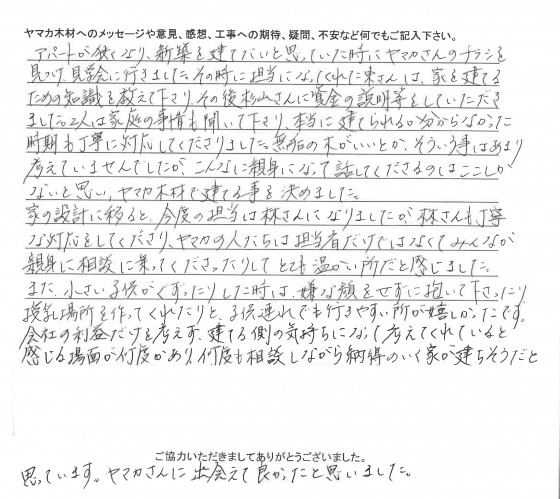 ヤマカ木材へのメッセージや意見、感想、工事への期待、疑問、不安など何でもご記入下さい。
アパートが狭くなり、新築を建てたいと思っていた時にヤマカさんのチラシを
見つけ、見学会に行きました。その時に担当になってくれた東さんは、家を建てる
ための知識を教えて下さり、その後杉山さんに資金の説明等をしていただき
ました。2人は家庭の事情も聞いて下り、本当に建てられるか分からなかった
時期も丁寧に対応してくださりました。無垢の木がいいとか、そういう事はあまり
考えていませんでしたが、こんなに親身になって話してくださるのはここしか
ないと思い、ヤマカ木材で建てる事を決めました。
家の設計に移ると、今度の担当は林さんになりましたが、林さんも丁寧
な対応をしてくださり、ヤマカの人たちは担当者だけではなくてみんなが
親身に相談に乗ってくださったりしてとても温かい所だと感じました。
また、小さい子供がぐずったりした時は、嫌な顔をせずに抱いて下さったり
授乳場所を作ってくれたりと、子供連れでも行きやすい所が嬉しかったです。
会社の利益だけを考えず、建てる側の気持ちになって考えてくれていると
感じる場面が何度かあり、何度も相談しながら納得のいく家が建ちそうだと
ご協力いただきましてありがとうございました。
思っています。ヤマカさんに出会えて良かったと思いました。